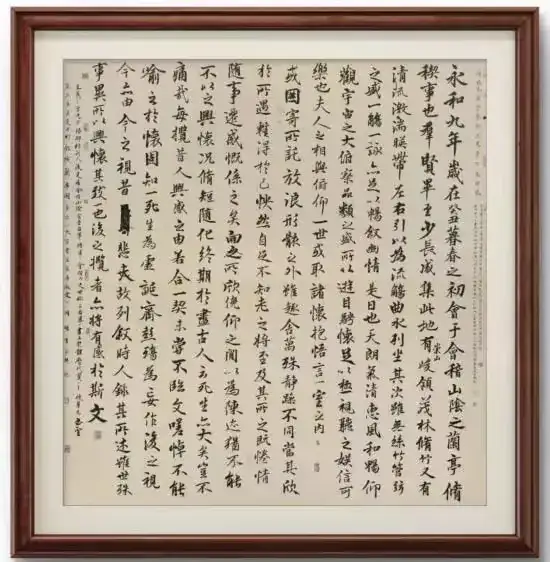 永和九年歲在癸丑暮春之初會于會稽山陰之蘭亭脩
稧事也羣賢畢至少長咸集此地有崇山峻領茂林脩竹又有
清流激湍暎帶左右引以為流觴曲水列坐其次雖無絲竹管弦
之盛一觴一詠亦足以暢叙幽情是日也天朗氣清惠風和暢仰
觀宇宙之大俯察品類之盛所以遊目騁懷足以極視聽之娛信可
樂也夫人之相與俯仰一世或取諸懷抱悟言一室之內
或因寄所託放浪形骸之外雖趣舍萬殊靜躁不同當其欣
於所遇暫得於己怏然自足不知老之將至及其所之既惓情
隨事遷感慨係之矣向之所欣俛仰之閒以為陳迹猶不能
不以之興懷況脩短隨化終期於盡古人云死生亦大矣豈不
痛哉每攬昔人興感之由若合一契未嘗不臨文嗟悼不能
喻之於懷固知一死生為虛誕齊彭殤為妄作後之視
今亦由今之視昔悲夫故列叙時人錄其所述雖世殊
事異所以興懷其致一也後之攬者亦將有感於斯文